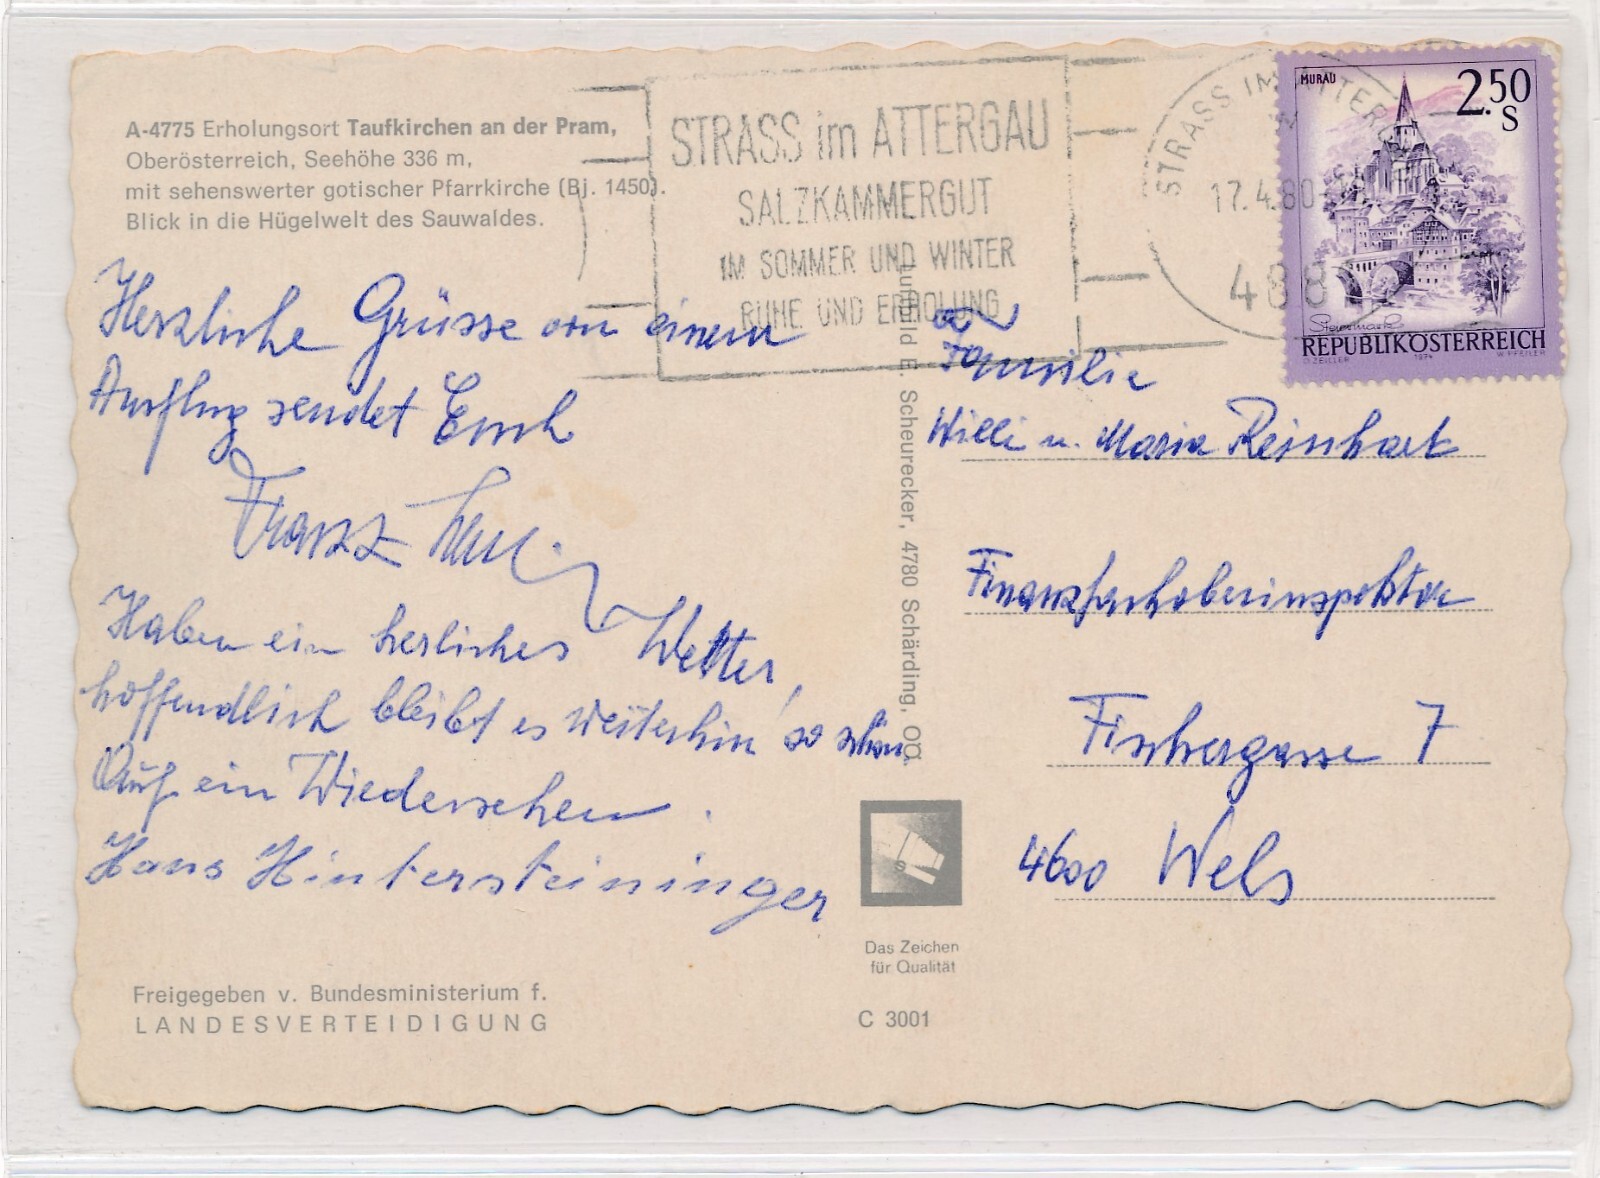 A-4775 Erholungsort Taufkirchen an der Pram,
Oberösterreich, Seehöhe 336 m,
mit sehenswerter gotischer Pfarrkirche (Bj. 1450).
Blick in die Hügelwelt des Sauwaldes.
STRASS im ATTERGAU
SALZKAMMERGUT
IM SOMMER UND WINTER
RUHE UND ERHOLUNG
STRASS IM ATTERGAU
17.4.80
488
MURAU
2.50
S
Steiermark
REPUBLIK ÖSTERREICH
O. ZEILLER 1974 W. PFEILER
Herzliche Grüsse von einem
Ausflug sendet Euch
Franz
Haben ein herliches Wetter,
hoffendlich bleibt es weiterhin so schön
Auf ein Wiedersehen.
Hans Hintersteininger
Luftbild E. Scheurecker, 4780 Schärding, OÖ.
Familie
Willi u. Maria Reinhart
Finanzfachoberinspektor
Fischergasse 7
4600 Wels
Das Zeichen
für Qualität
C 3001
Freigegeben v. Bundesministerium f.
LANDESVERTEIDIGUNG